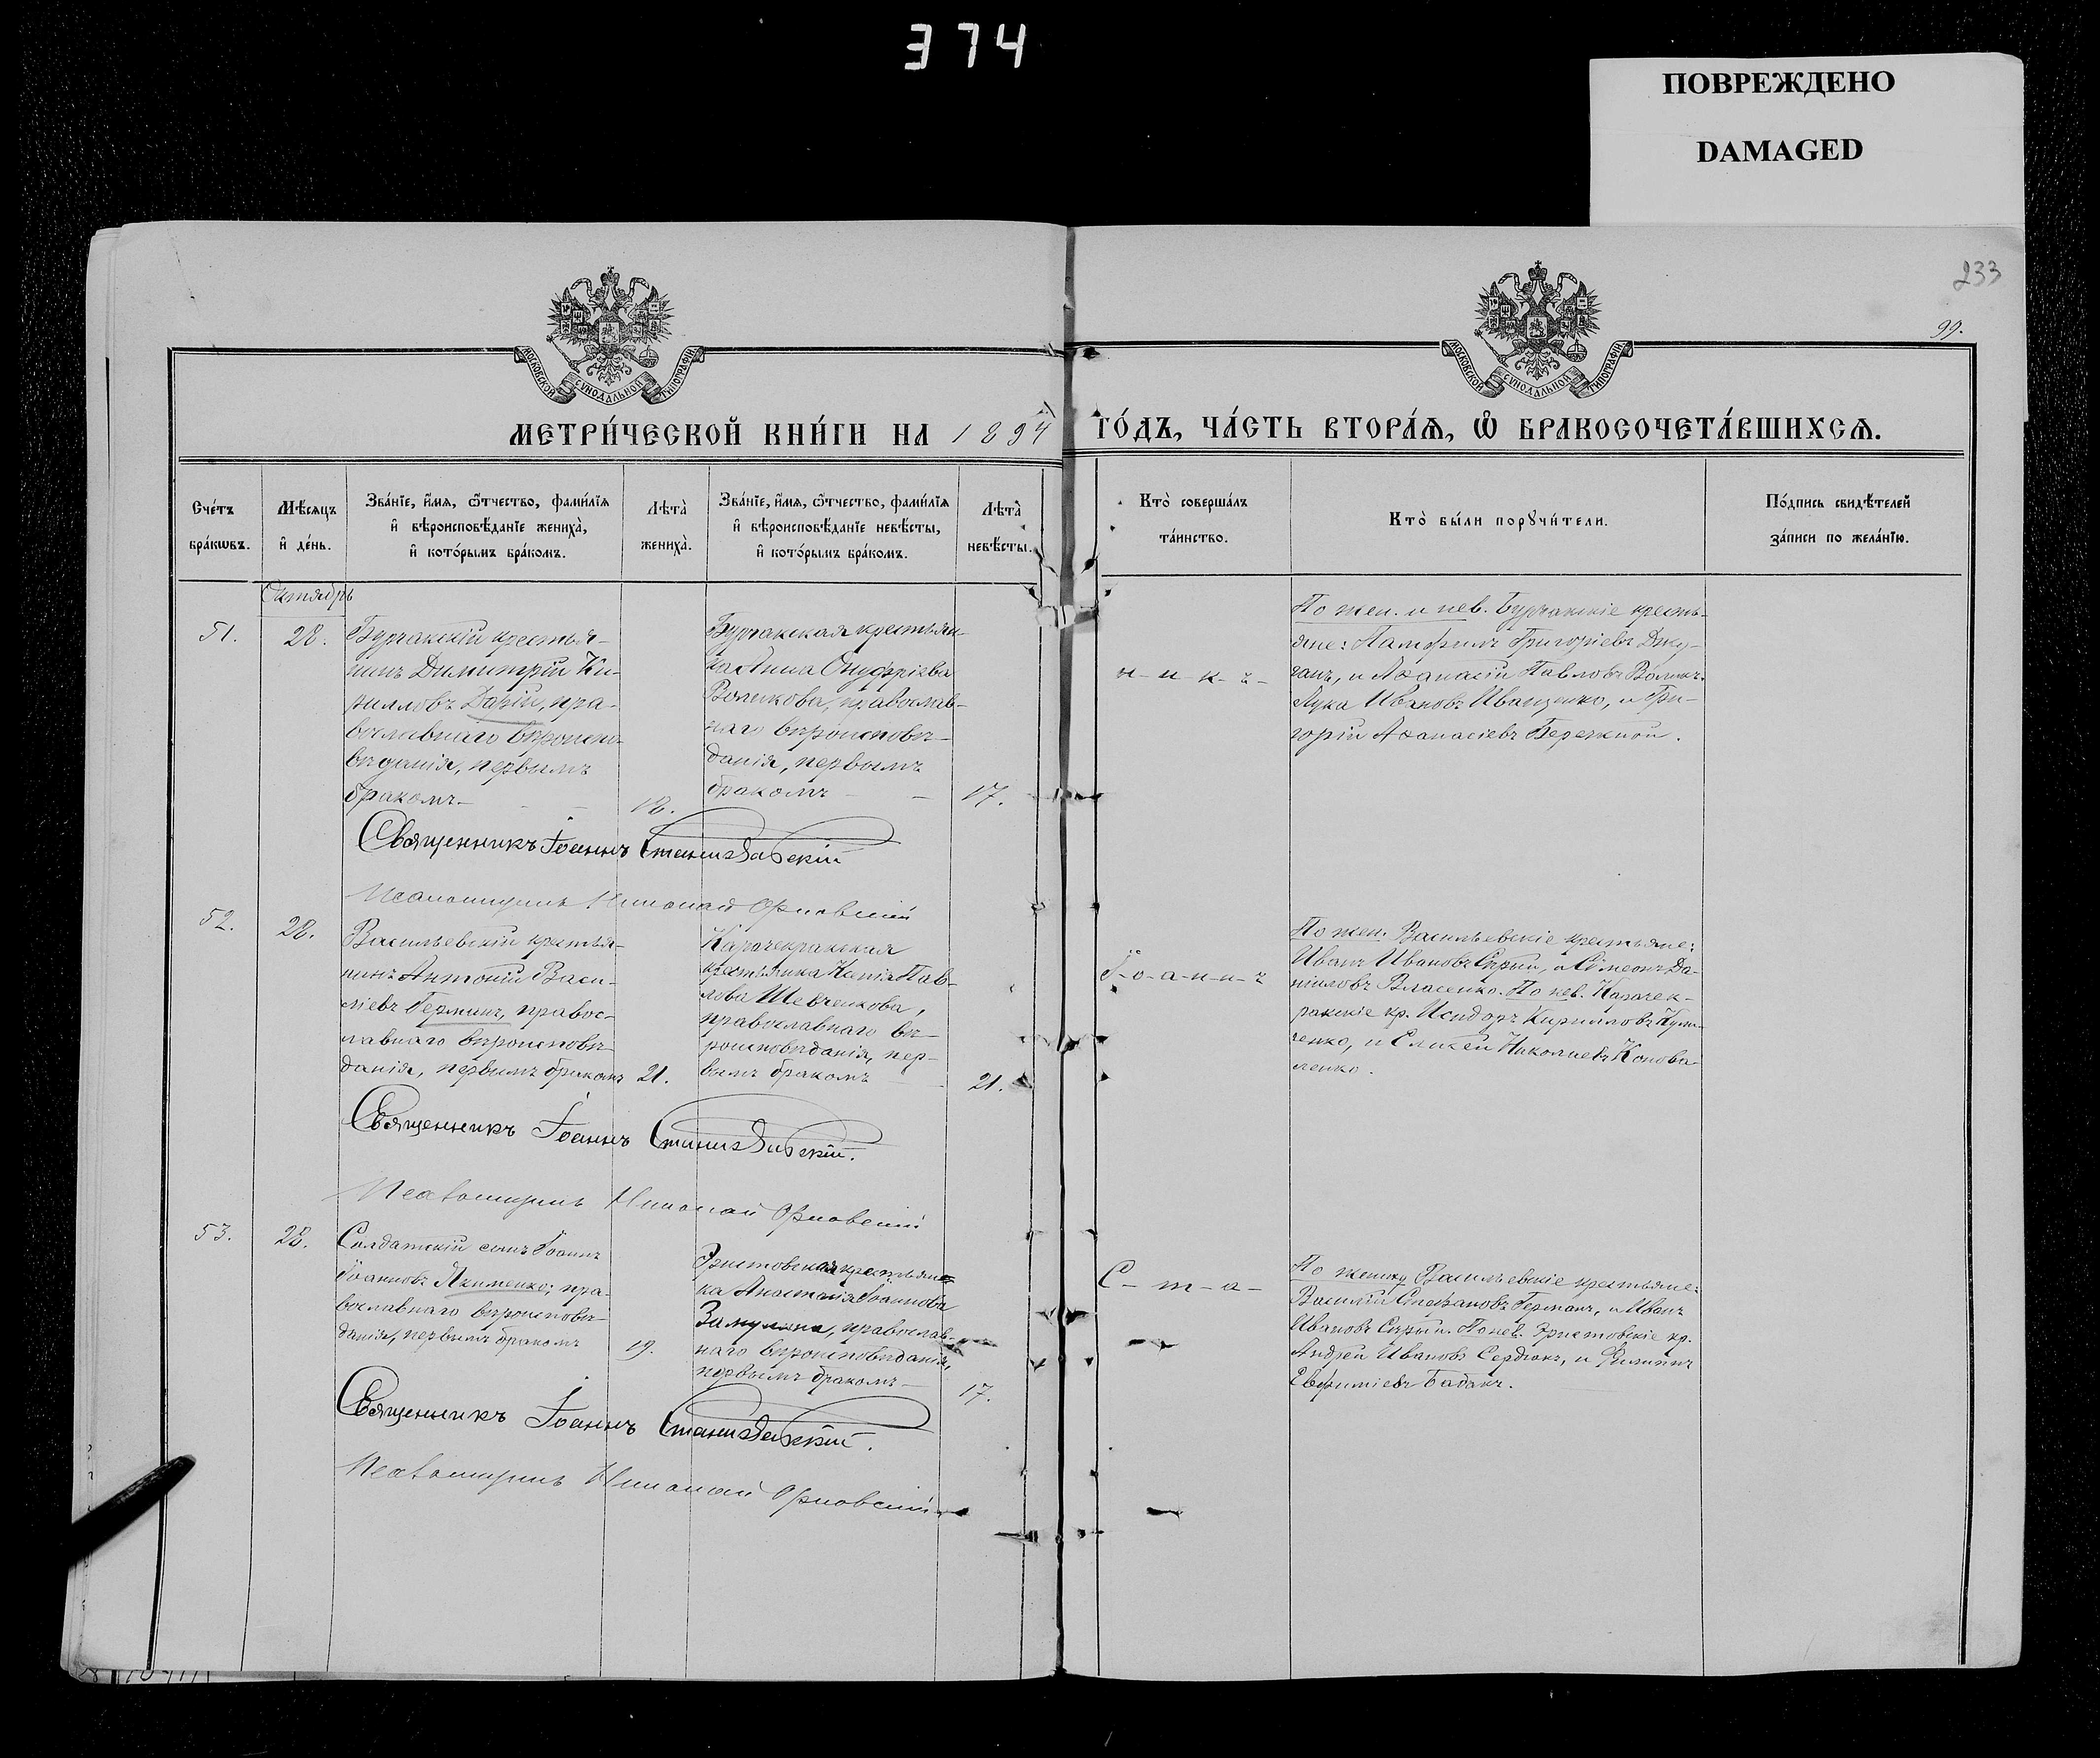 374
ПОВРЕЖДЕНО
DAMAGED
233
99.
МОСКОВСКОЙ СУНОДАЛЬНОЙ ТИПОГРАФІИ
МОСКОВСКОЙ СУНОДАЛЬНОЙ ТИПОГРАФІИ
МЕТРИ́ЧЕСКОЙ КНИ́ГИ НА 1894 ГО́ДЪ, ЧА́СТЬ ВТОРА́Ѧ, Ѽ БРАКОСОЧЕТА́ВШИХСѦ.
Сче́тъ бра́кѡвъ.
Мѣ́сѧцъ и҆ де́нь.
Зва́нїе, и҆́мѧ, ѻ҆́тчество, фами́лїѧ
и҆ вѣроисповѣ́данїе жениха̀,
и҆ кото́рымъ бра́комъ.
Лѣта̀ жениха̀.
Зва́нїе, и҆́мѧ, ѻ҆́тчество, фами́лїѧ
и҆ вѣроисповѣ́данїе невѣ́сты,
и҆ кото́рымъ бра́комъ.
Лѣта̀ невѣ́сты.
Кто̀ соверша́лъ
та́инство.
Кто̀ бы́ли порꙋчи́тели.
По́дпись свидѣ́телей
за́писи по жела́нїю.
Октябрь
51.
28.
Бурчакскій крестья-
нинъ Димитрій Ки-
рилловъ Дагій, пра-
вославнаго вѣроиспо-
вѣданія, первымъ
бракомъ
18.
Бурчакская крестьян-
ка Анна Онуфріева
Воликова, православ-
наго вѣроисповѣ-
данія, первымъ
бракомъ
17.
н-и-к-ъ-
По жен. и нев. Бурчакскіе кресть-
яне: Памфилъ Григоріевъ Джу-
ганъ, и Аѳанасій Павловъ Воликъ.
Лука Ивановъ Иващенко, и Гри-
горій Аѳанасіевъ Бережной.
Священникъ Іоаннъ Станиславскій
Псаломщикъ Николай Орловскій
52.
28.
Васильевскій крестья-
нинъ Антоній Васи-
ліевъ Германъ, правос-
лавнаго вѣроисповѣ-
данія, первымъ бракомъ
21.
Карачекракская
крестьянка Ксенія Пав-
лова Шевченкова,
православнаго вѣ-
роисповѣданія, пер-
вымъ бракомъ
21.
І-о-а-н-н-ъ
По жен. Васильевскіе крестьяне:
Иванъ Ивановъ Сѣрый, и Симеонъ Да-
ніиловъ Власенко. По нев. Карачек-
ракскіе кр. Исидоръ Кирилловъ
и Елисей Николаевъ Конова-
ленко.
Священникъ Іоаннъ Станиславскій.
Псаломщикъ Николай Орловскій
53.
28.
Солдатскій сынъ Іоаннъ
Іоанновъ Якименко; пра-
вославнаго вѣроисповѣ-
данія, первымъ бракомъ
19.
Эристовская крестьян-
ка Анастасія Іоаннова
православ-
наго вѣроисповѣданія,
первымъ бракомъ
17.
С-т-а-
По жениху Васильевскіе крестьяне:
Василій Стефановъ Германъ, и Иванъ
Ивановъ Сѣрый. По нев. Эристовскіе кр.
Андрей Ивановъ Сердюкъ, и Филиппъ
Евфиміевъ Бабакъ.
Священникъ Іоаннъ Станиславскій.
Псаломщикъ Николай Орловскій